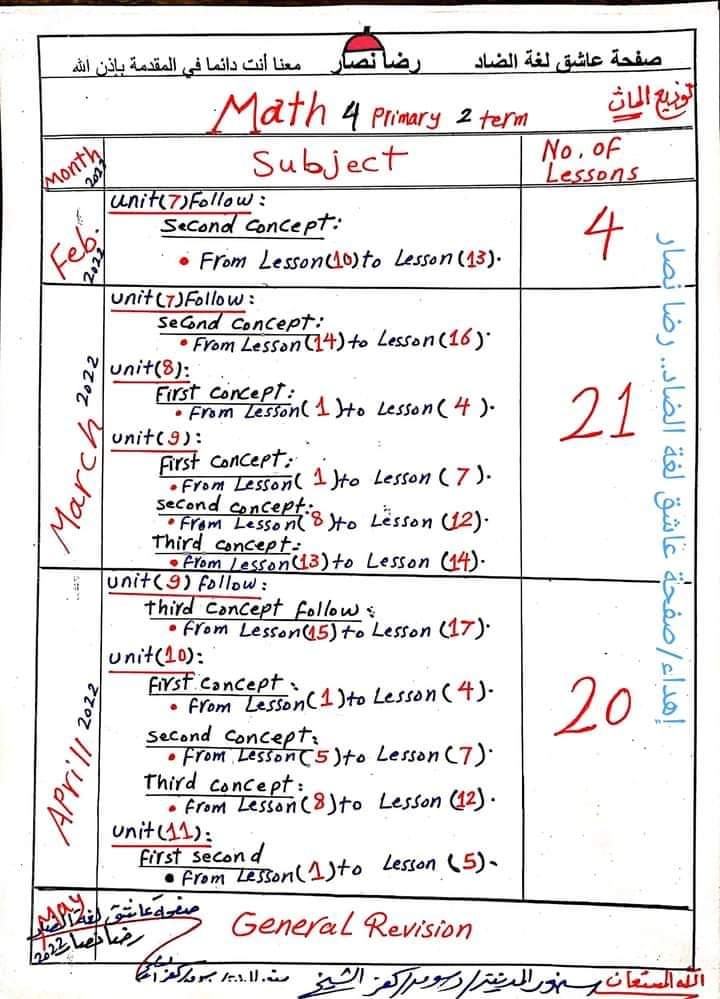 صفحة عاشق لغة الضاد رضا نصار معنا أنت دائما في المقدمة بإذن الله
توزيع الماث
Math 4 Primary 2 term
Month 2022 Subject No. of Lessons
Feb. 2022
unit(7)Follow:
Second concept:
• From Lesson(10)to Lesson(13).
4
March 2022
unit(7)Follow:
second concept:
• From Lesson(14)to Lesson(16).
unit(8):
First concept:
• From Lesson(1)to Lesson(4).
unit(9):
First concept:
• From Lesson(1)to Lesson(7).
second concept:
• From Lesson(8)to Lesson(12).
Third concept:
• From Lesson(13)to Lesson(14).
21
Aprill 2022
unit(9) follow:
third concept follow:
• From Lesson(15)to Lesson(17).
unit(10):
First concept:
• From Lesson(1)to Lesson(4).
second concept:
• From Lesson(5)to Lesson(7).
Third concept:
• From Lesson(8)to Lesson(12).
unit(11):
First second
• From Lesson(1)to Lesson(5).
20
May 2022
General Revision
صفحة عاشق لغة الضاد
رضا نصار
إهداء/صفحة عاشق لغة الضاد.. رضا نصار
الله المستعان
كفر الشيخ